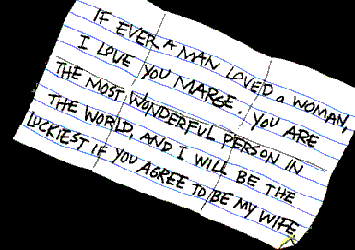 IF EVER A MAN LOVED a WOMAN,
I LOVE YOU MARGE. YOU ARE
THE MOST WONDERFUL PERSON IN
THE WORLD, AND I WILL BE THE
LUCKIEST IF YOU AGREE TO BE MY WIFE